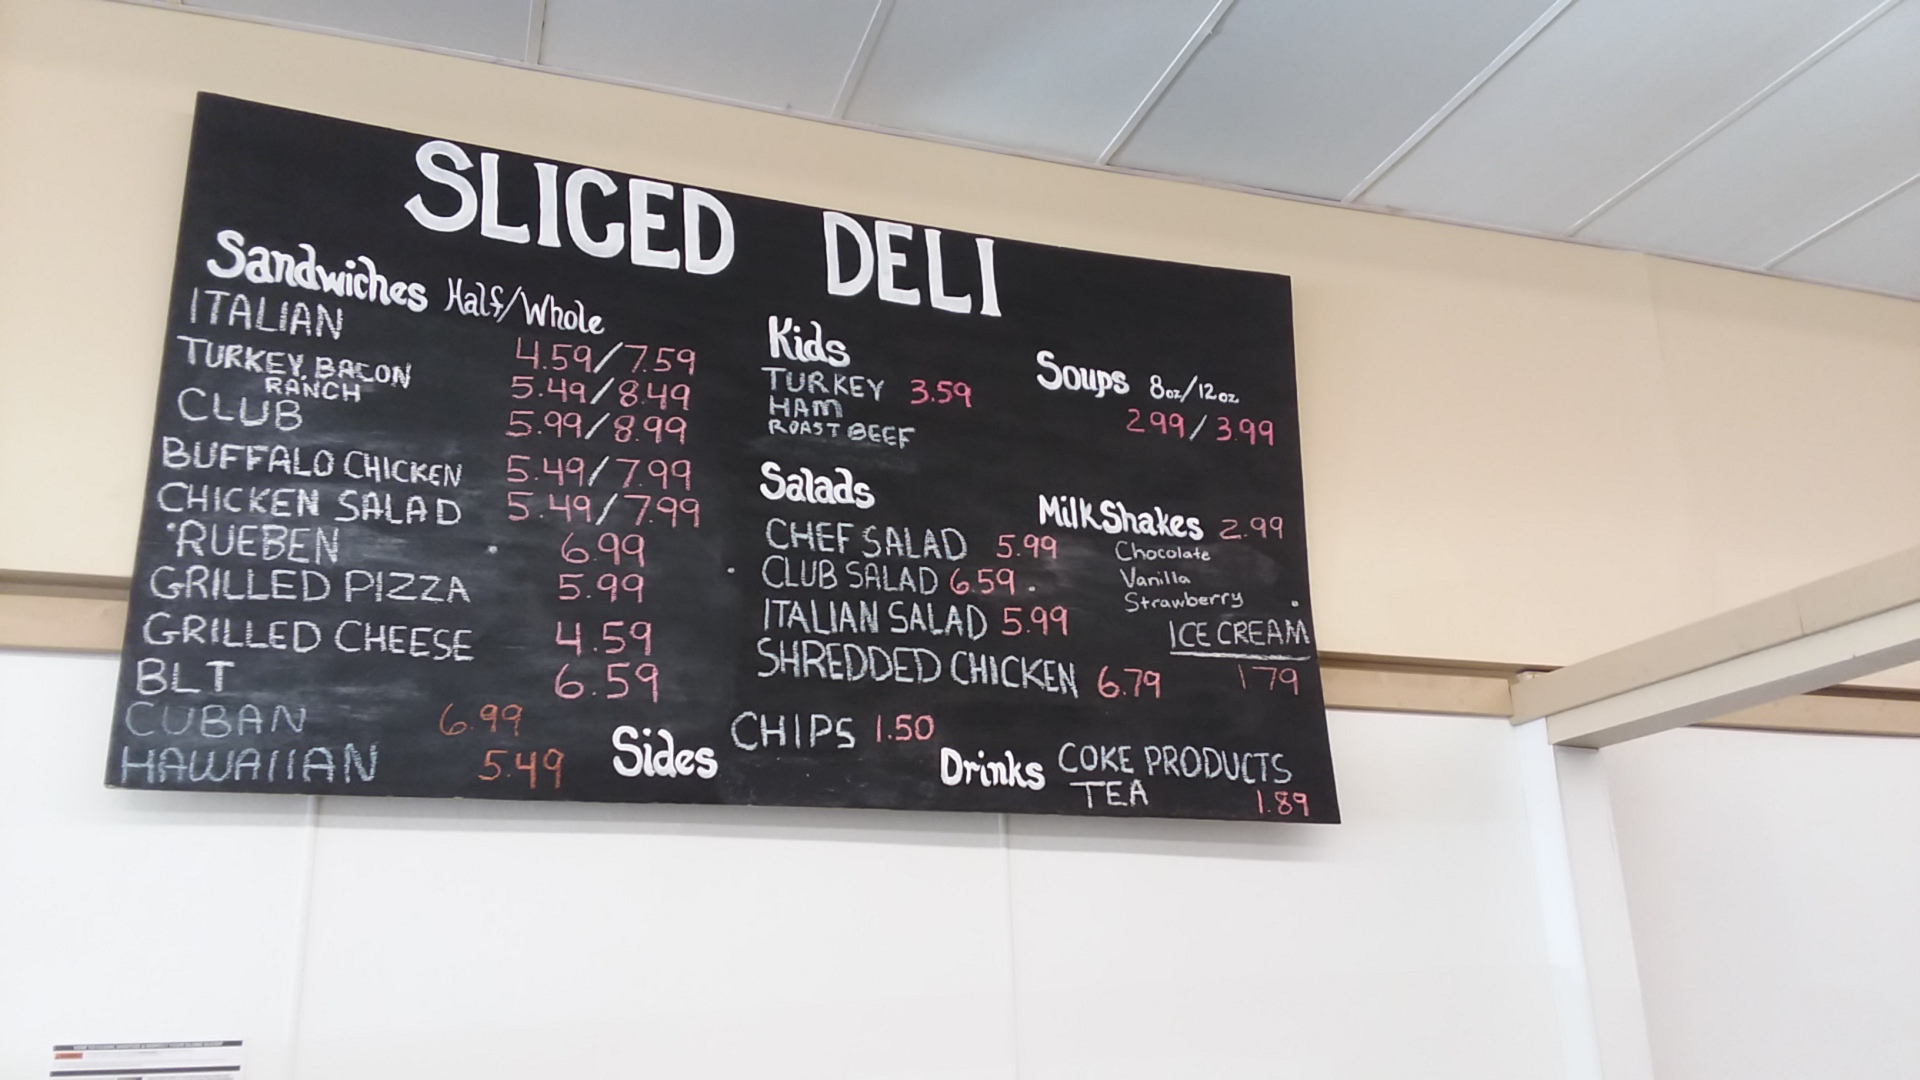 SLICED DELI
Sandwiches Half/Whole
ITALIAN 4.59/7.59
TURKEY, BACON
RANCH 5.49/8.49
CLUB 5.99/8.99
BUFFALO CHICKEN 5.49/7.99
CHICKEN SALAD 5.49/7.99
RUEBEN 6.99
GRILLED PIZZA 5.99
GRILLED CHEESE 4.59
BLT 6.59
CUBAN 6.99
HAWAIIAN 5.49
Kids
TURKEY 3.59
HAM
ROAST BEEF
Salads
CHEF SALAD 5.99
CLUB SALAD 6.59
ITALIAN SALAD 5.99
SHREDDED CHICKEN 6.79
Soups 8oz/12oz
2.99/3.99
MilkShakes 2.99
Chocolate
Vanilla
Strawberry
ICE CREAM
1.79
Sides CHIPS 1.50
Drinks COKE PRODUCTS
TEA 1.89